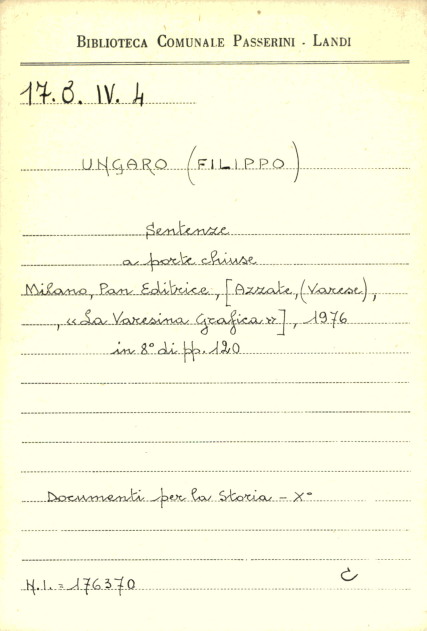 BIBLIOTECA COMUNALE PASSERINI - LANDI
17. B. IV. 4
UNGARO (FILIPPO)
Sentenze
a porte chiuse
Milano, Pan Editrice, [Azzate, (Varese),
, «La Varesina Grafica»], 1976
in 8° di pp. 120
Documenti per la Storia - X°
N.I. = 176370
C